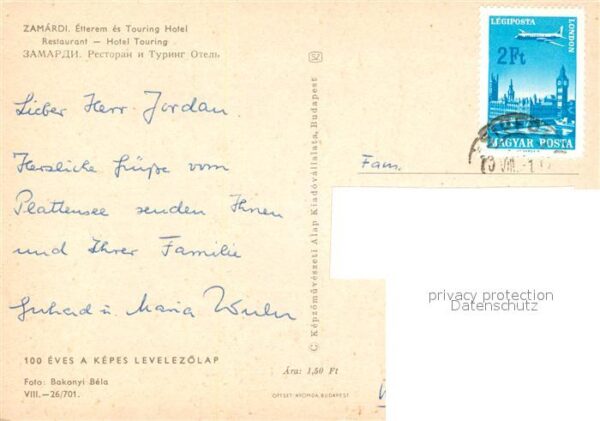 ZAMÁRDI. Étterem és Touring Hotel
Restaurant — Hotel Touring
ЗАМАРДИ. Ресторан и Туринг Отель
Lieber Herr Jordan.
Herzliche Grüße vom
Plattensee senden Ihnen
und Ihrer Familie
Gerhard u. Maria
100 ÉVES A KÉPES LEVELEZŐLAP
Foto: Bakonyi Béla
VIII.—26/701.
Képzőművészeti Alap Kiadóvállalata, Budapest
Ára: 1,50 Ft
OFFSET-NYOMDA, BUDAPEST
LÉGIPOSTA
LONDON
2Ft
MAGYAR POSTA
Fam.
privacy protection
Datenschutz